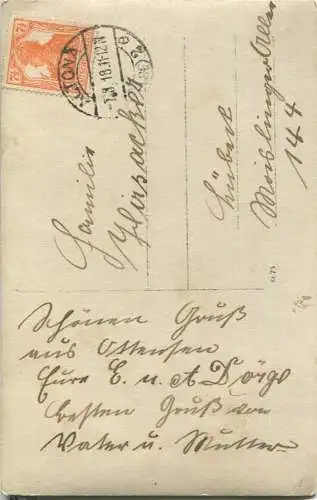 7½
ALTONA
-7.8.18.11-12V
Familie
Lübeck
Moislinger Allee
144
Schönen Gruß
aus Ottensen
Eure E. u. A Dörge
besten Gruß von
Vater u. Mutter